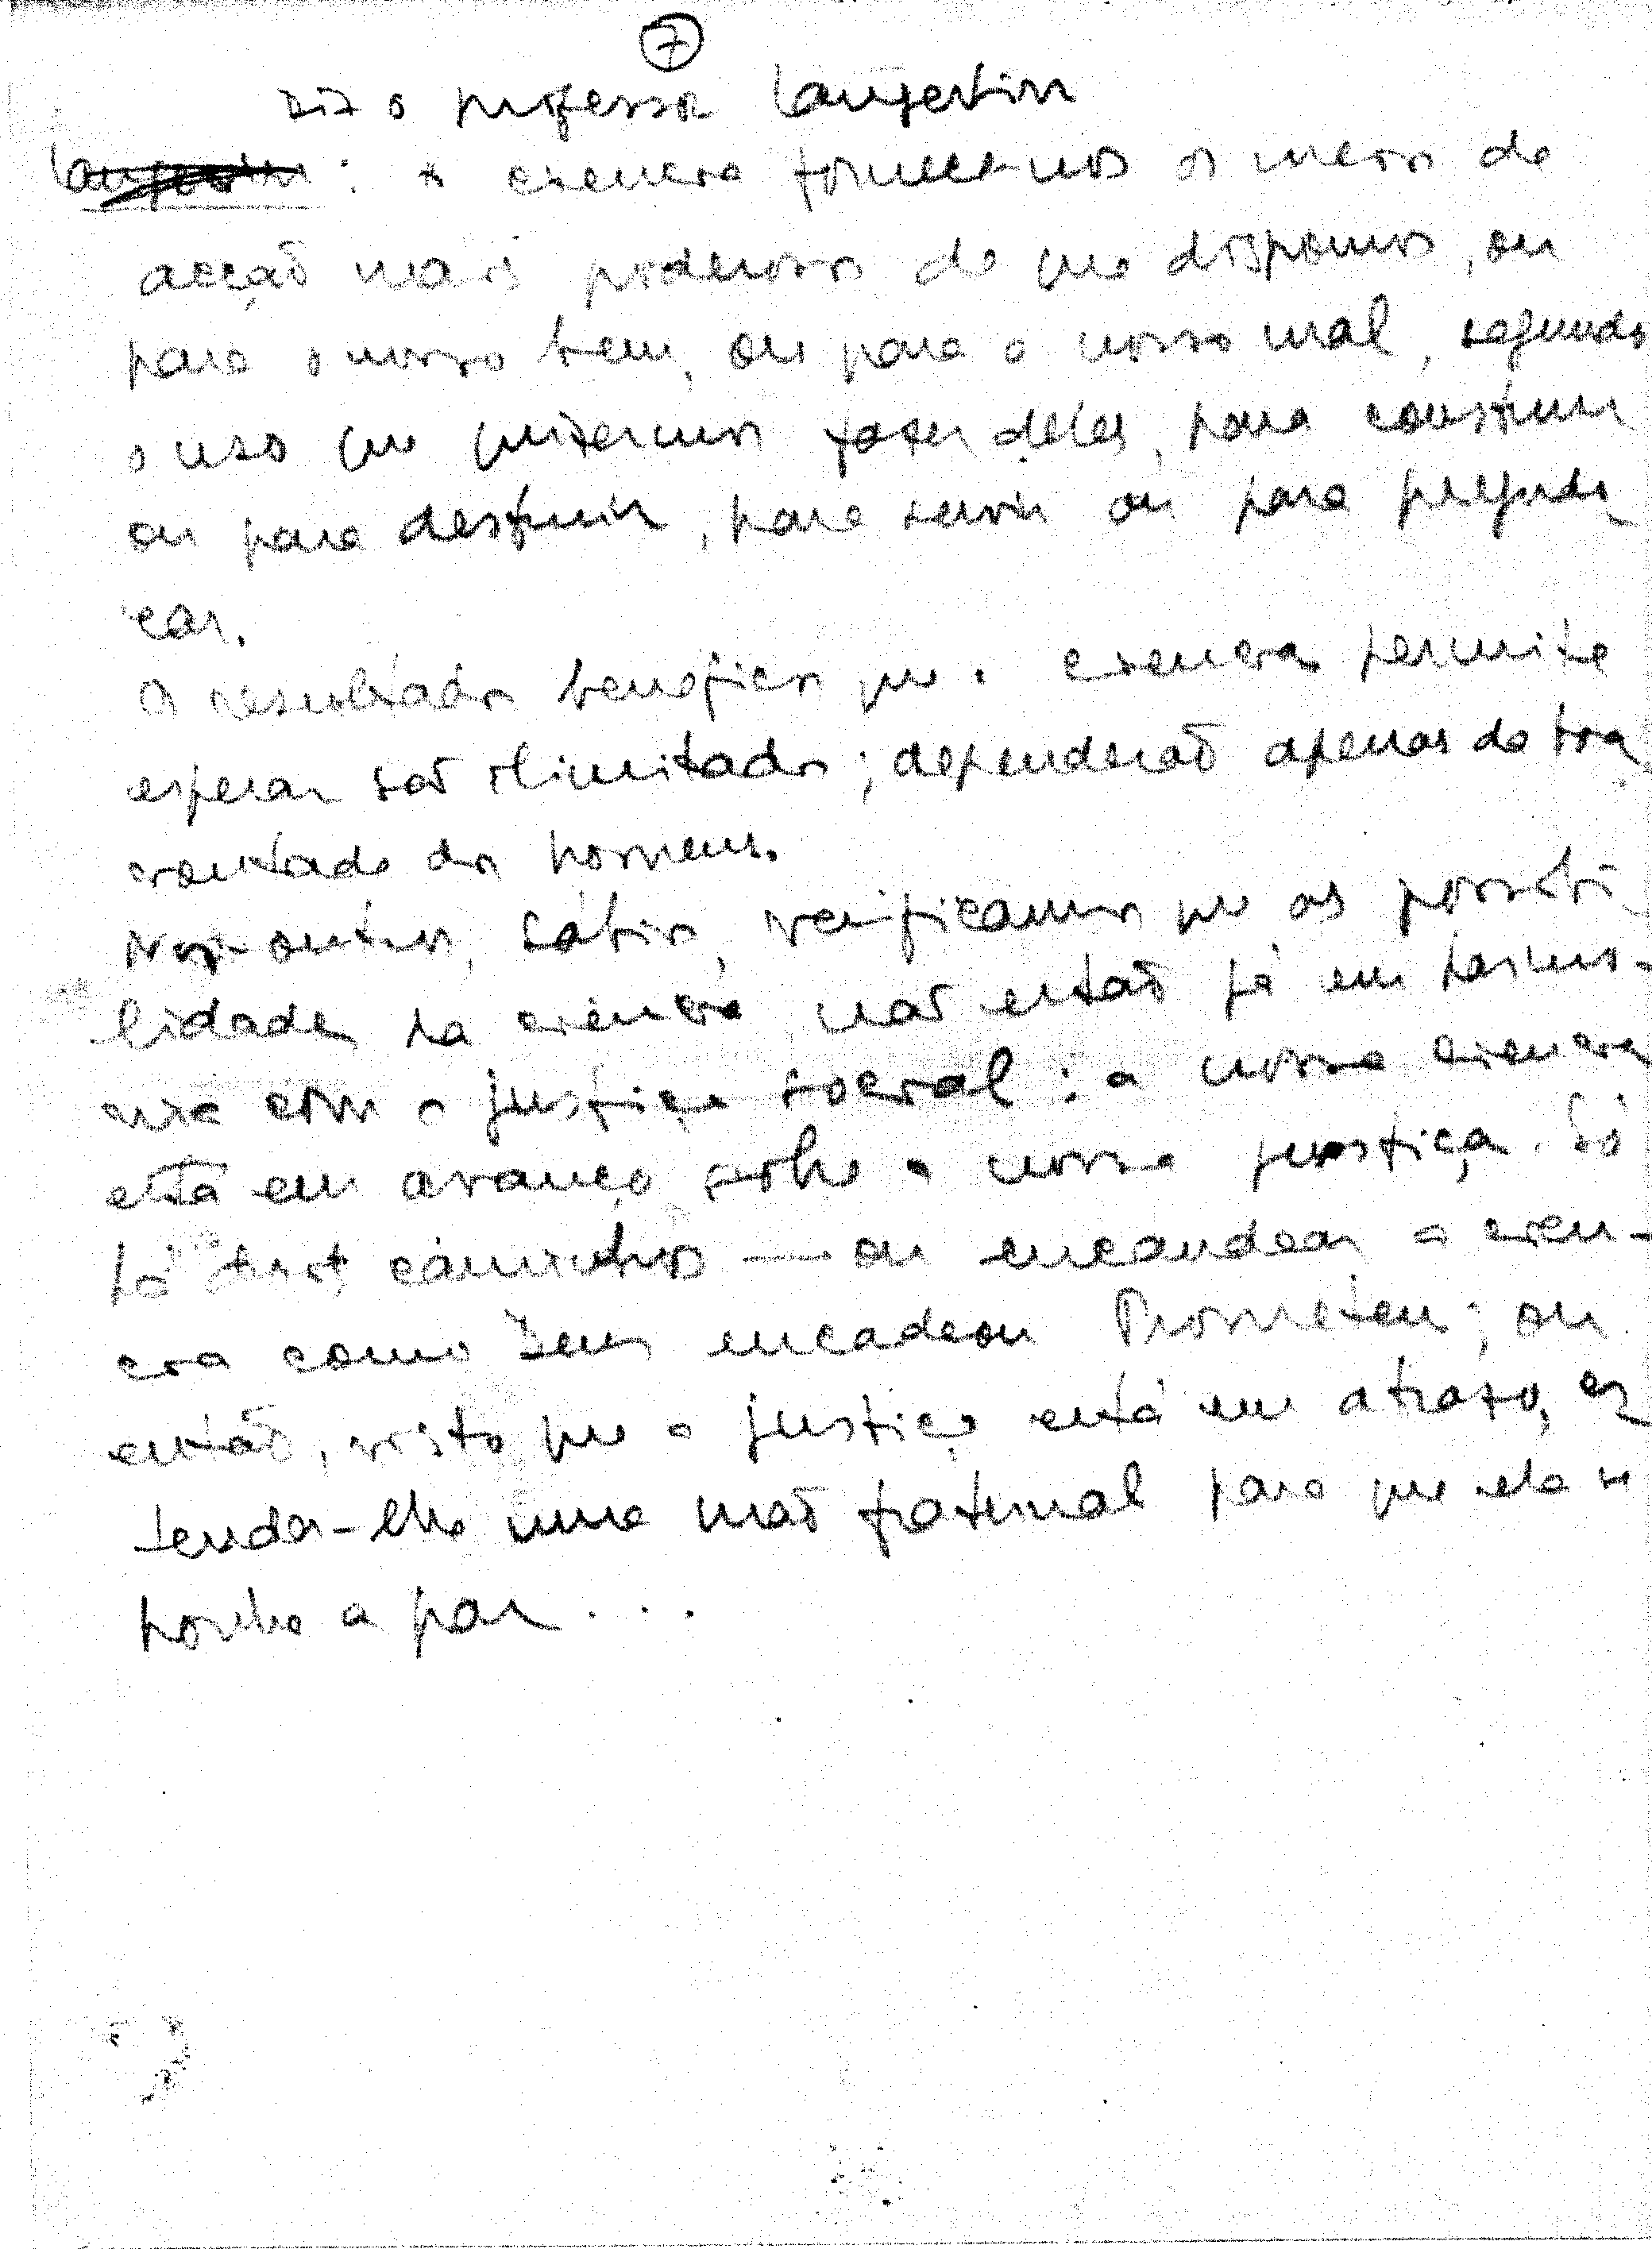 7
Diz o professor Langevin
Langevin : A ciência fornece-nos os meios de
acção mais poderosos de que dispomos, ou
para o nosso bem, ou para o nosso mal, segundo
o uso que quisermos fazer deles, para construir
ou para destruir, para servir ou para prejudi
car.
Os resultados benéficos que a ciência permite
esperar são ilimitados; dependerão apenas da boa
vontade dos homens.
Nós outros, sábios, verificamos que as possibi
lidades da ciência não estão já em harmo-
nia com a justiça social : a nossa ciência
está em avanço sobre a nossa justiça. Só
há dois caminhos — ou encandear a ciên-
cia como Zeus encadeou Prometeu; ou
então, visto que a justiça está em atraso, es
tender-lhe uma mão fraternal para que ela se
ponha a par...